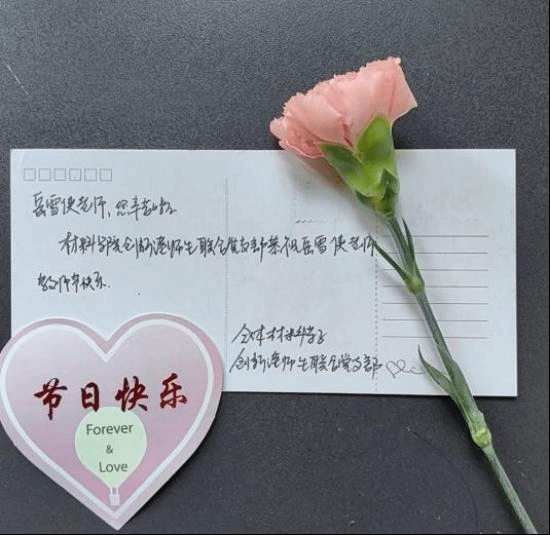 岳雪侠老师，您辛苦啦
材料学院创新港师生联合党支部恭祝岳雪侠老师
教师节快乐.
全体材料学子
创新港师生联合党支部
节日快乐
Forever
&
Love